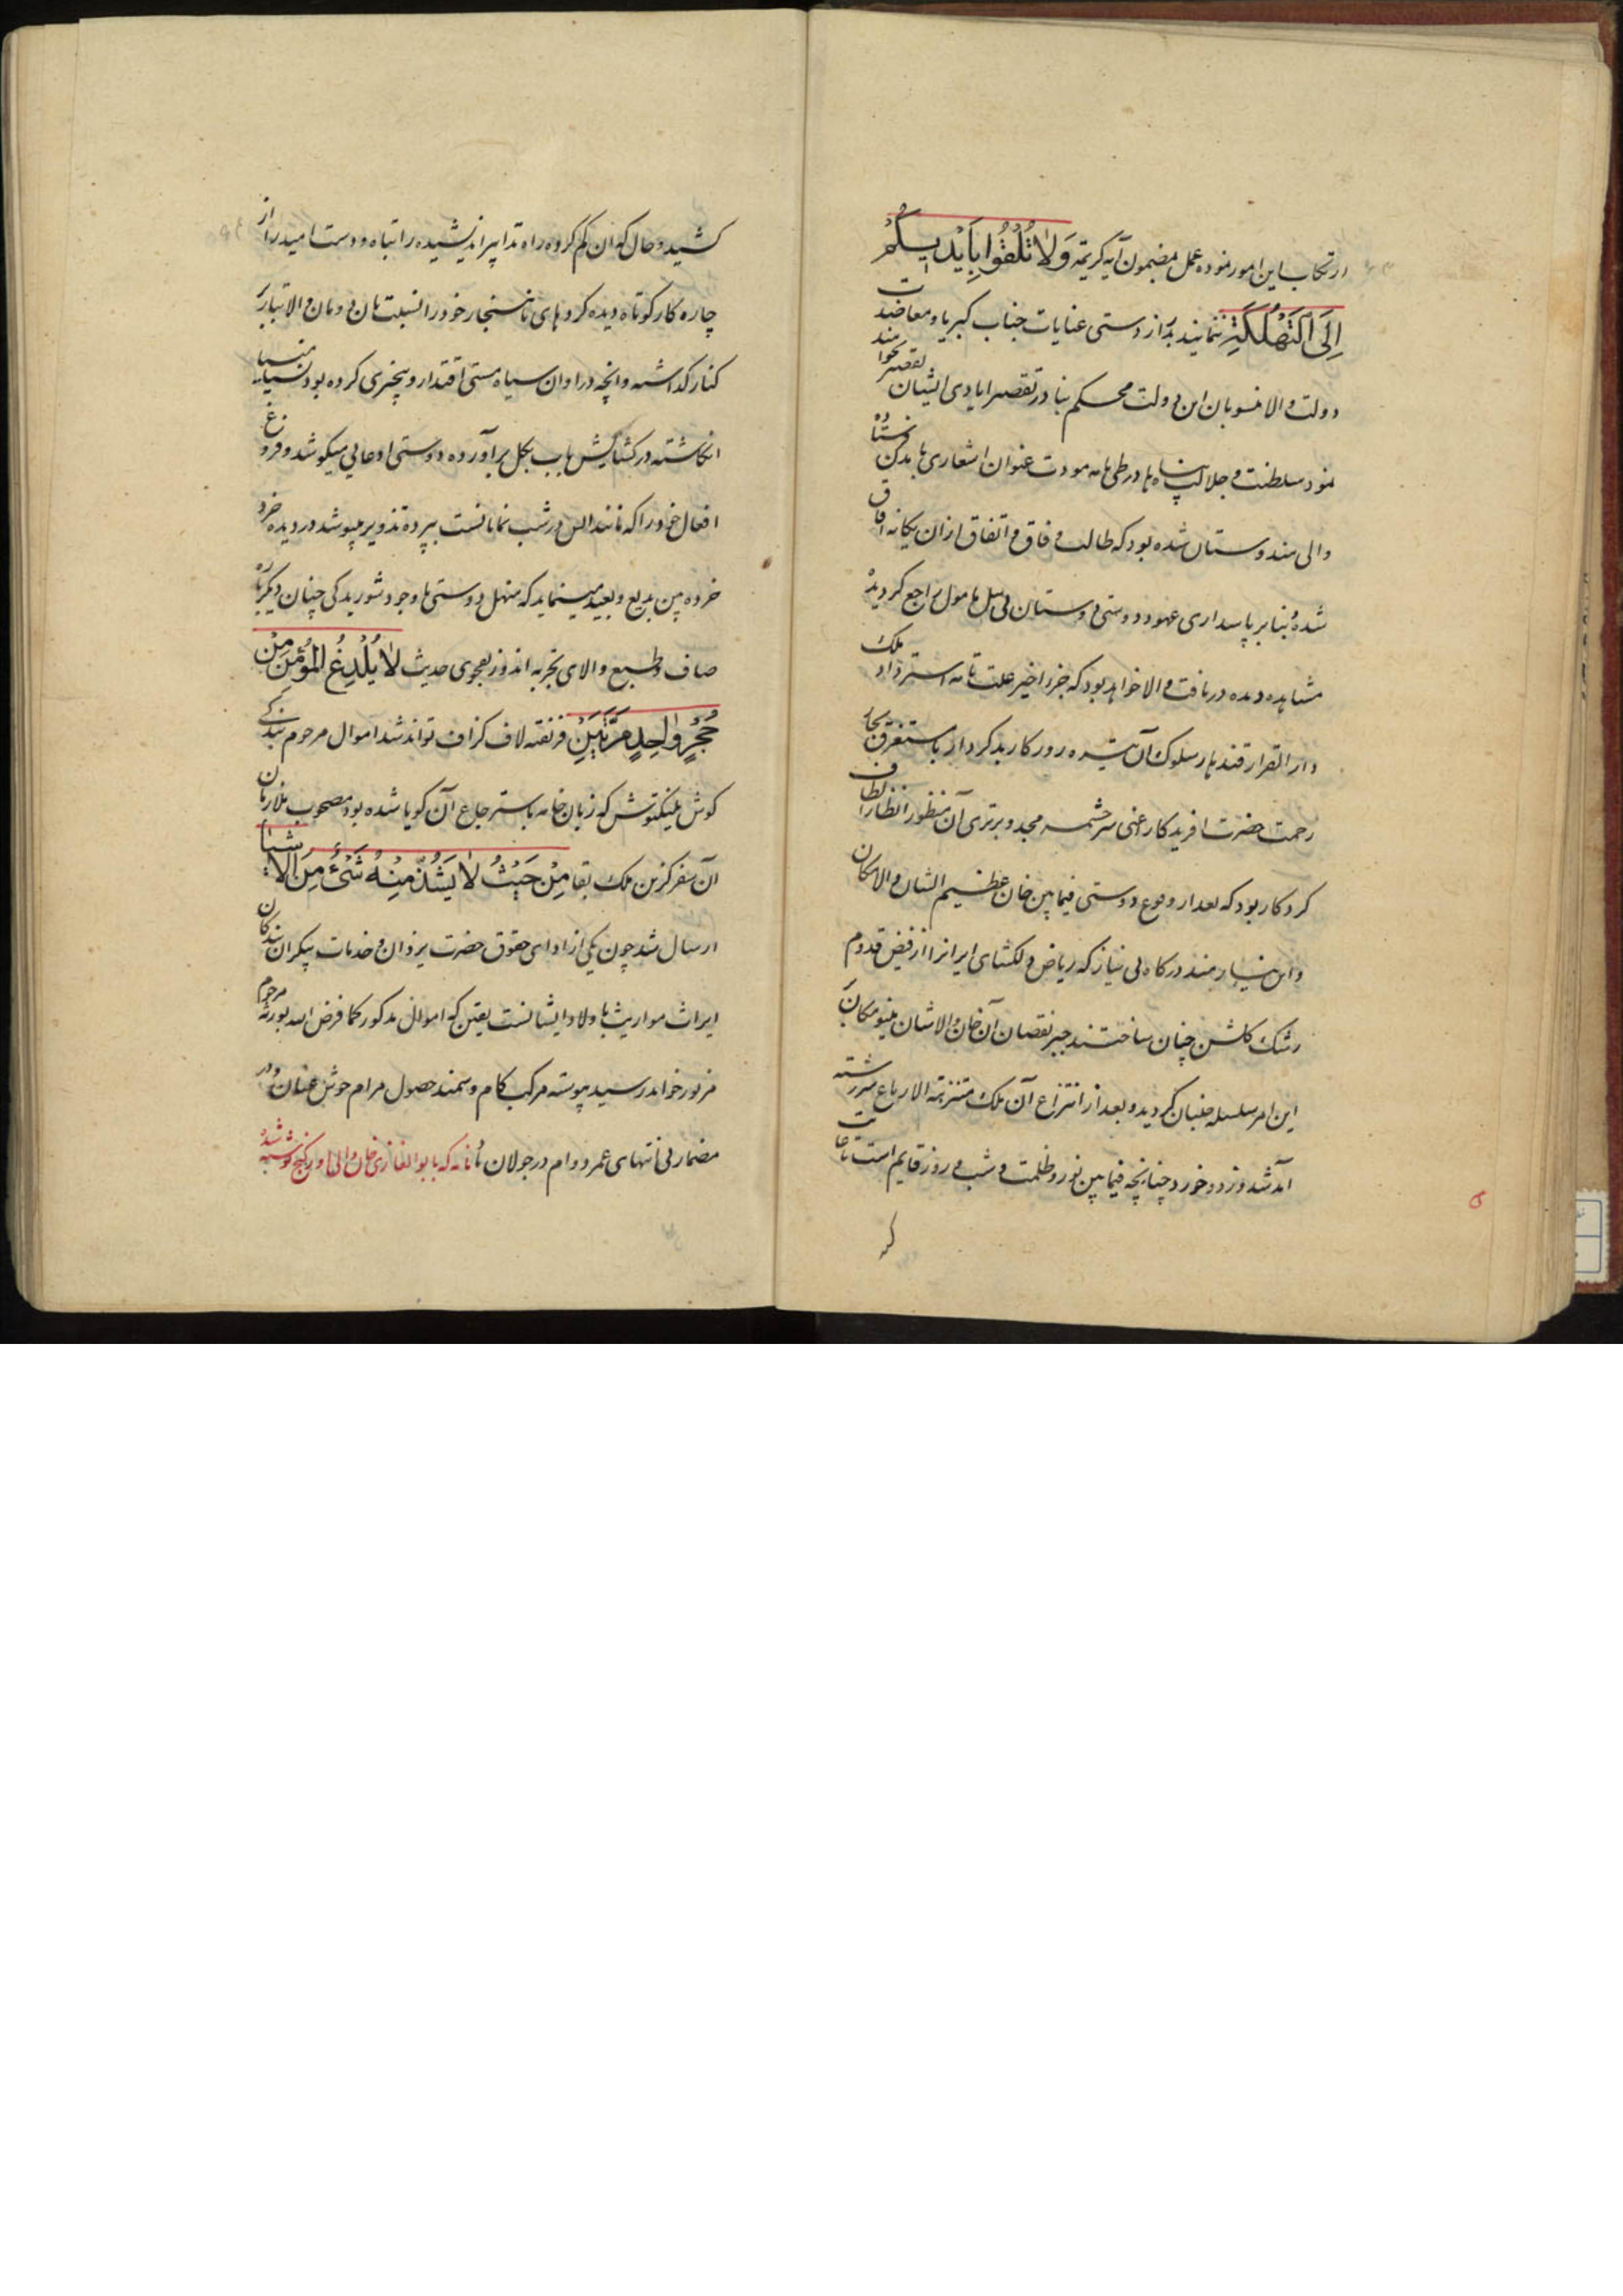 ارتکاب این امور نموده عمل بمضمون آیه کریمه وَلَا تُلْقُوا بِاَیْدِیکُمْ
اِلَی التَّهْلُکَةِ ننمایند بدرازدستی عنایات جناب کبریا و معاضدت
دولت والا منسوبان این دولت محکم بنا در تقصیر ایادی ایشان تقصیر نخواهند
نمود سلطنت و جلالت پناها در طی نامه مودت عنوان اشعاری ببدی فرستاده
والی هندوستان شده بود که طالب وفاق و اتفاق از آن یکانه آفاق
شده بنا بر پاسداری عهود و دوستی دوستان بی نیل مامول مراجع کردیده
مشاهده دیده دریافت والا خواهد بود که جزء اخیر علت تامه استرداد ملک
دار القرار قندهار سلوک آن تیره روزکار بد کردار با مستغرق بحار
رحمت حضرت افریدکار اعنی سرچشمه مجد و برتری آن منظور انظار الطاف
کردکار بود که بعد از وقوع دوستی فیمابین خان عظیم الشان والامکان
و این نیازمند درکاه بی نیاز که ریاض دلکشای ایرانرا از فیض قدوم
رشک کلشن جنان ساختند جبر نقصان آن خان والاشان مینو مکان
این امر سلسله جنبان کردید و بعد از انتزاع آن ملک متنزهة الارباع سررشته
آمد شد و زد و خورد چنانچه فیمابین نور و ظلمت و شب و روز قایم است تا حا
کشید و حال که آن کم کرده راه تدابیر اندیشیده را تباه و دست امید را از
چاره کار کوتاه دیده کرده های ناهنجار خود را نسبت بان دودمان والا تبار بر
کنار کذاشته و آنچه در اوان سیاه مستی اقتدار و بیخبری کرده بود نسیا منسیا
انکاشته در کشایش باب بکل برآورده دوستی ادعایی میکوشد و فروغ
افعال خود را که مانند الس در شب نمایانست بپرده تذویر میپوشد در دیده خرد
خرده بین بدیع و بعید مینماید که منهل دوستی با وجود شوریدکی چنان دیکر باره
صاف و طبع والای تجربه اندوز بفحوی حدیث لَا یُلْدَغُ الْمُؤْمِنُ مِنْ
جُحْرٍ وَاحِدٍ مَرَّتَیْنِ فریفته لاف کزاف تواند شد اموال مرحوم بندکی
کوش یلنکتوش که زبان خامه باسترجاع آن کویا شده بود مصحوب ملازمان
آن سفر کزین ملک بقا مِنْ حَیْثُ لَا یَشُذُّ مِنْهُ شَیْءٌ مِنَ الْاَشْیَاء
ارسال شد چون یکی از ادای حقوق حضرت یزدان و خدمات بیکران بندکان
ایراث مواریث باولاد ایشانست یقین که اموال مذکور کما فرض الله بورثه مرحوم
مزبور خواهد رسید پیوسته مرکب کام و سمند حصول مرام خوش عنان و در
مضمار بی انتهای عمر و دوام در جولان باد نامه که بابوالغازی خان والی اورکنج نوشته شد